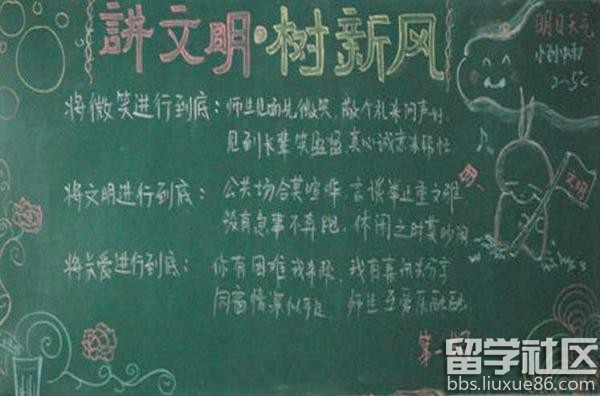 講文明·树新风
明日天气
小到中雨
2-5℃
将微笑进行到底：师生见面先微笑，敬个礼来问声好
见到长辈笑盈盈，真心诚意来帮忙
将文明进行到底：公共场合莫喧哗，言谈举止重文雅
没有急事不奔跑，休闲之时莫吵闹
将关爱进行到底：你有困难我来帮，我有喜讯共分享
同窗情深似手足，师生互爱乐融融
文明
第一期
留学社区
bbs.liuxue86.com